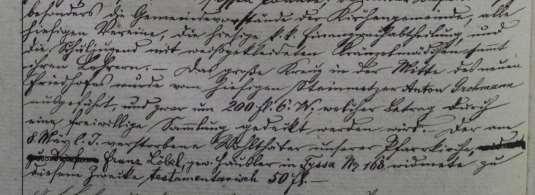 besonders die Gemeindevorstände der Kirchengemeinde, alle
hiesigen Vereine, die hiesige k. k. Finanzwachabtheilung und
die Schuljugend mit weißgekleideten sammt
ihren Lehrern. — Das große Kreuz in der Mitte des neuen
Friedhofes wurde vom hiesigen Steinmetzer Anton Grohmann
ausgeführt, und zwar um 200 fl. ö. W., welcher Betrag durch
eine freiwillige Sammlung gedeckt werden wird. Der am
8 May l. J. verstorbene Wohlthäter unserer Pfarrkirche,
Franz Löbel, gew. Häusler in No 168 widmete zu
diesem Zwecke testamentarisch 50 fl. —